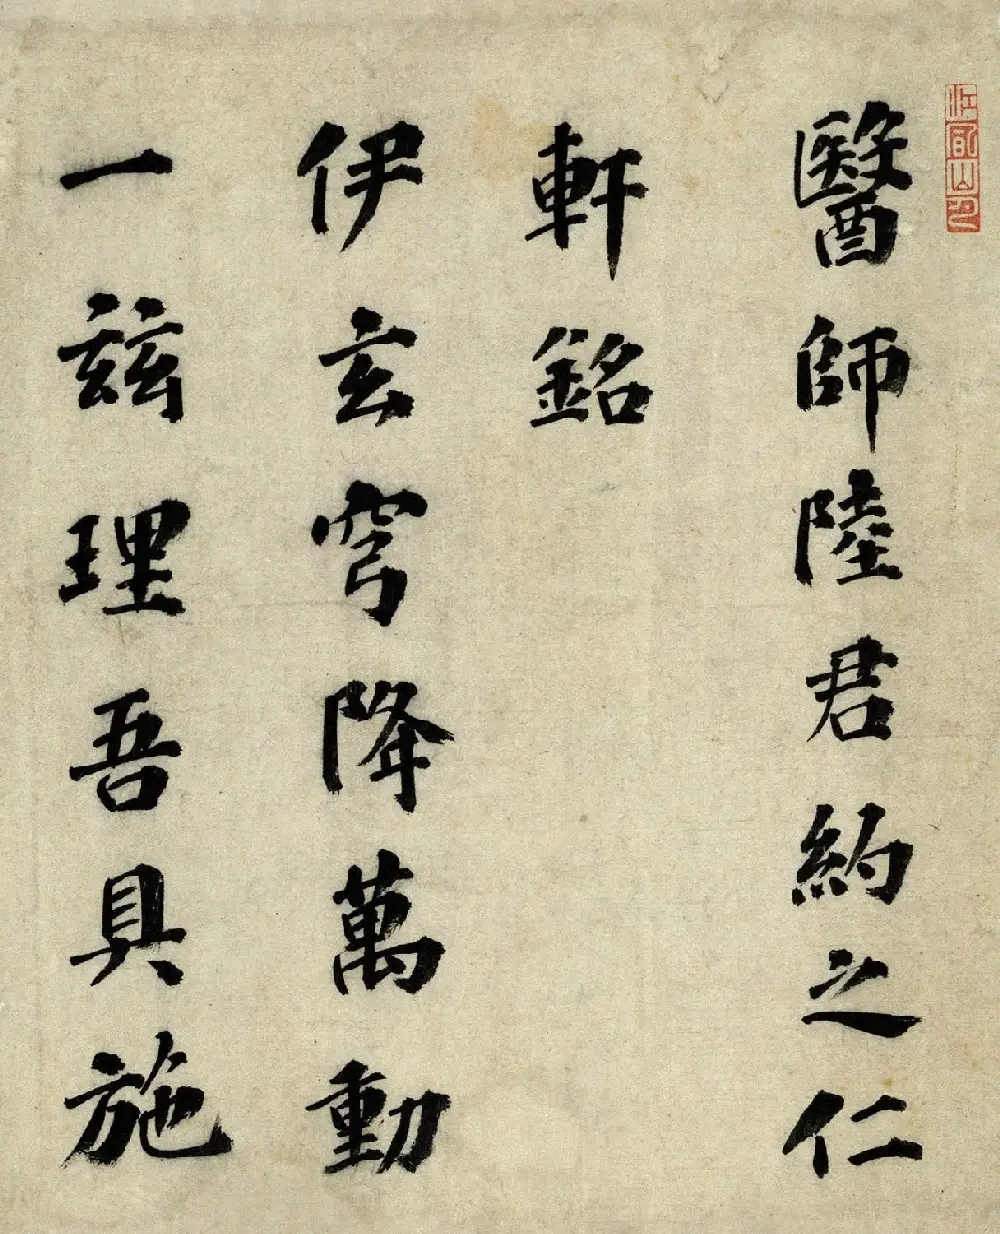 醫師陸君約之仁
軒銘
伊玄穹降萬動
一茲理吾具施